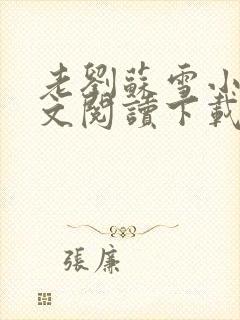 老劉蘇雪小
文閱讀下載
張廉